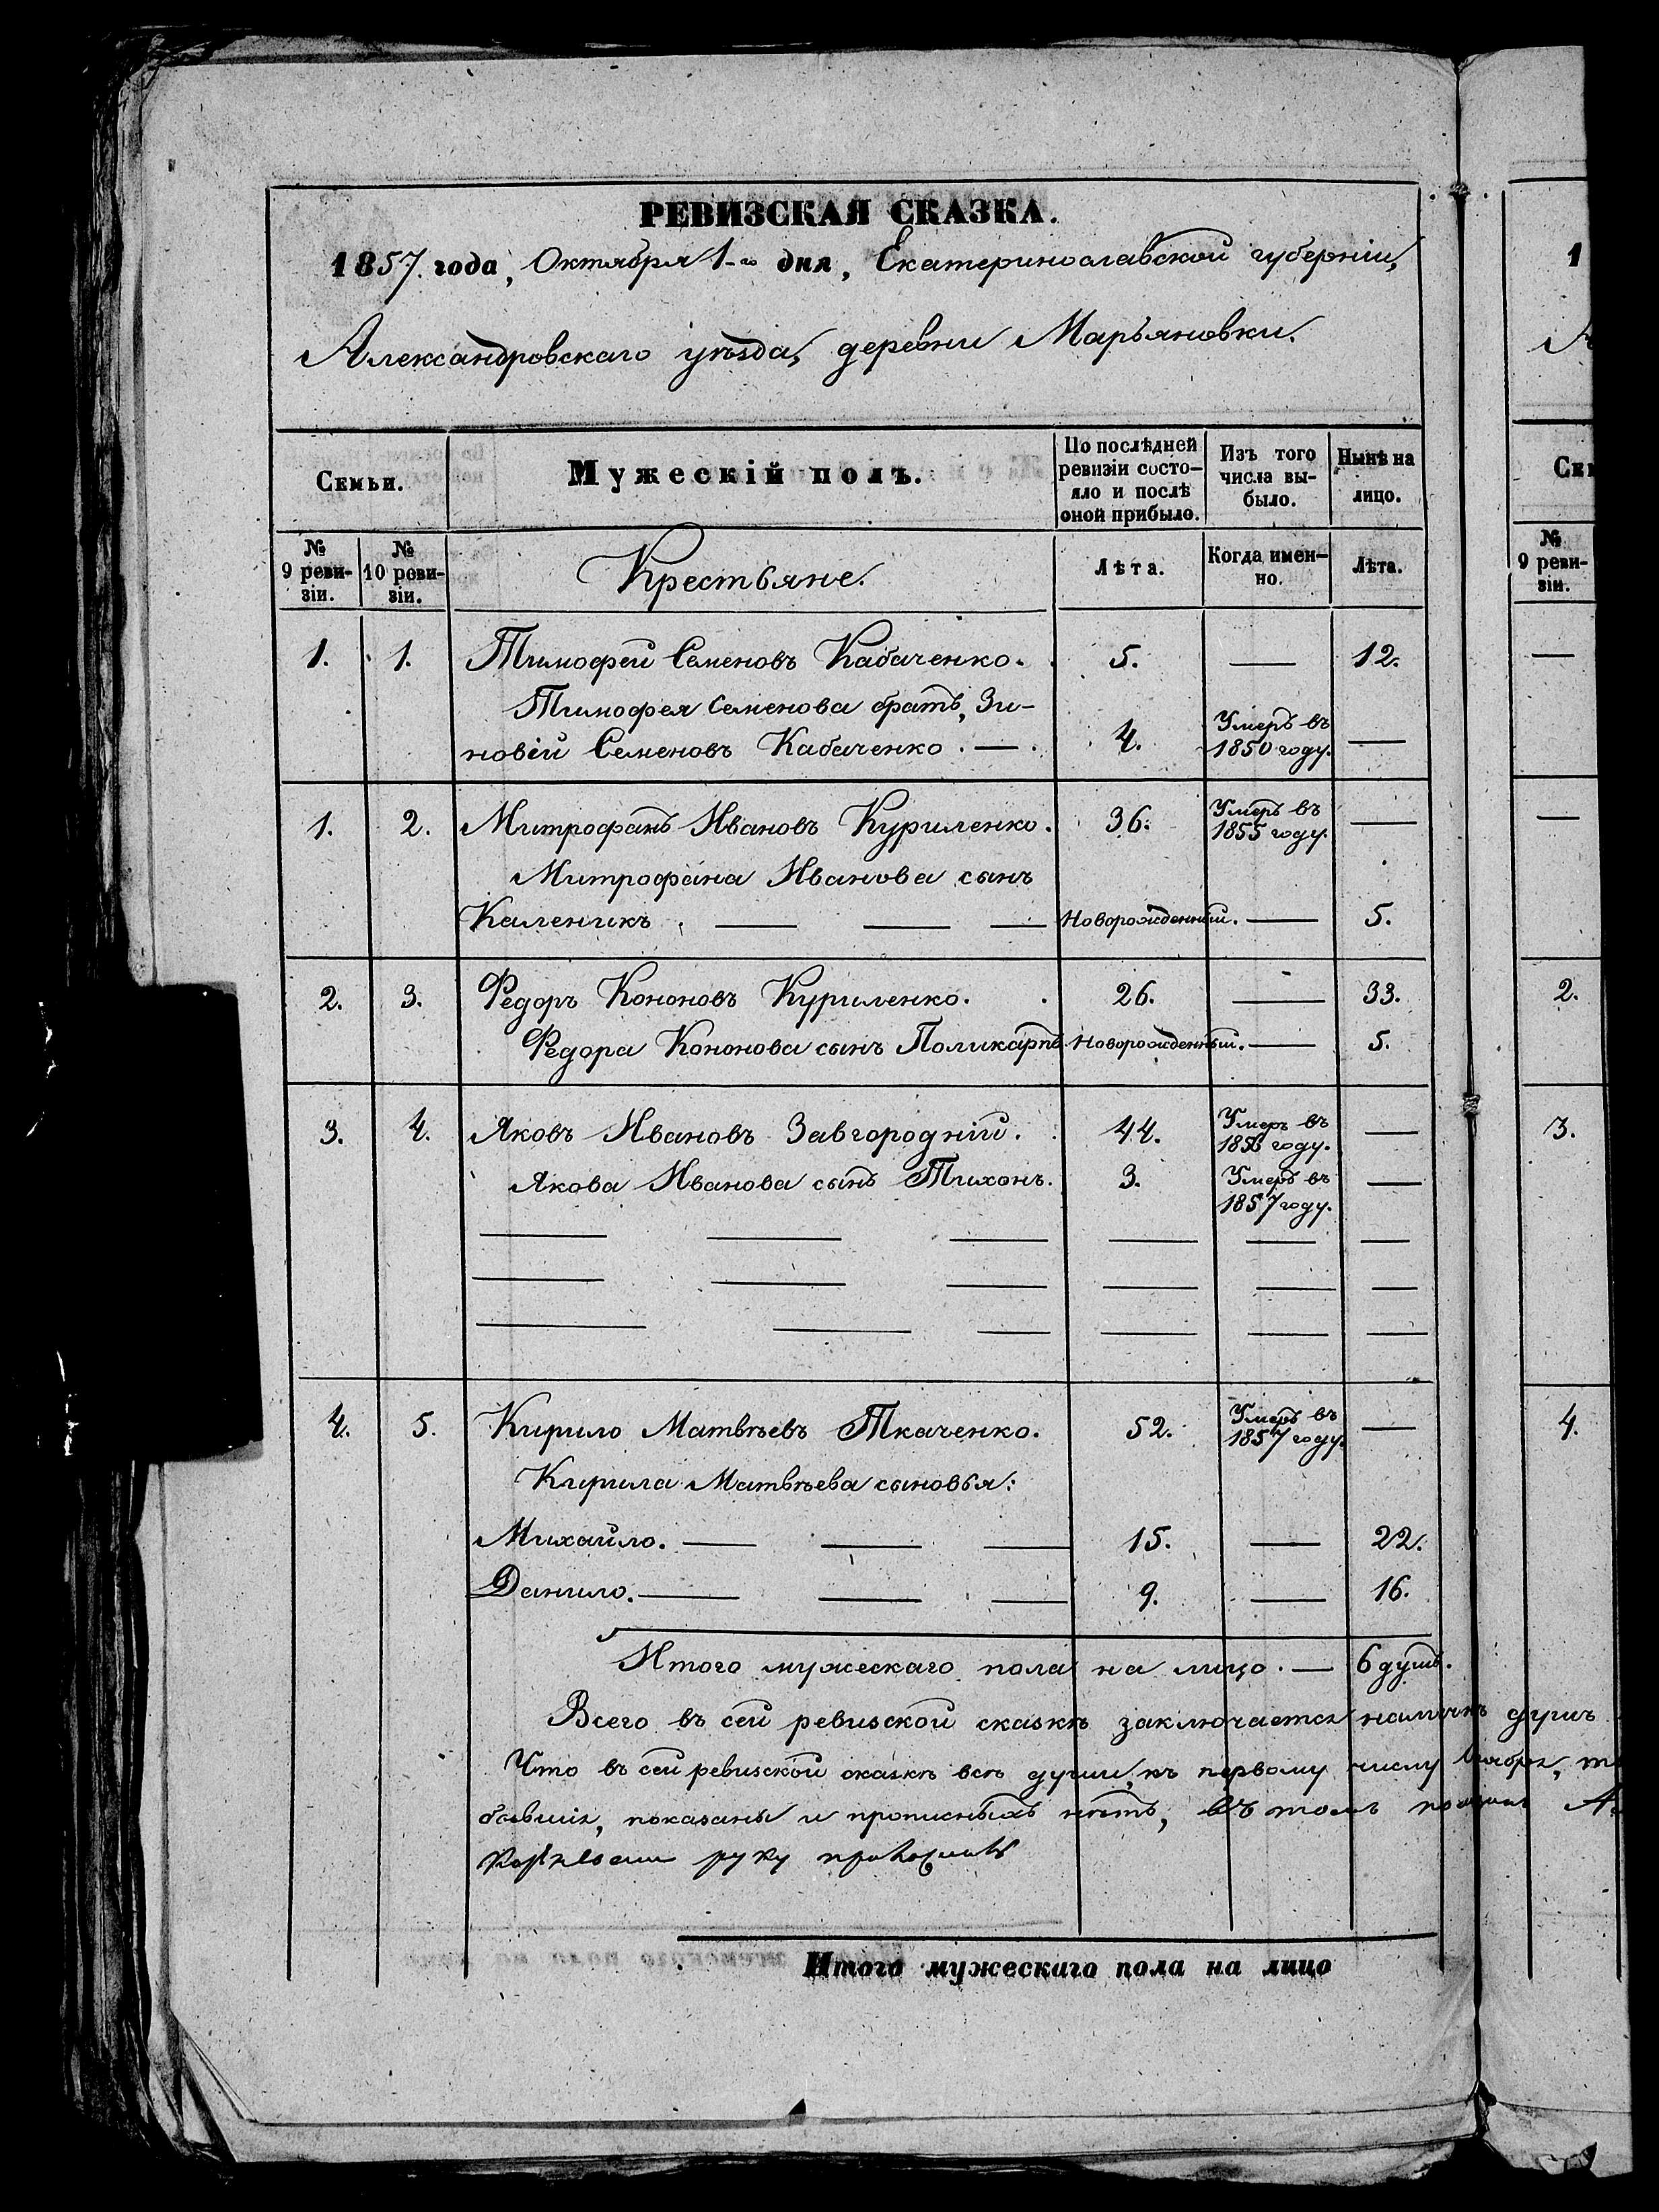 РЕВИЗСКАЯ СКАЗКА.
1857. года, Октября 1-го дня, Екатеринославской губерніи,
Александровскаго уѣзда, деревни Марьяновки.
Семьи.
Мужескій полъ.
По послѣдней ревизіи состо-
яло и послѣ оной прибыло.
Изъ того числа вы-
было.
Нынѣ на лицо.
№ 9 реви-
зіи.
№ 10 реви-
зіи.
Крестьяне.
Лѣта.
Когда имен-
но.
Лѣта.
1. 1. Тимофей Семеновъ Кабаченко. 5. — 12.
Тимофея Семенова братъ, Зи-
новій Семеновъ Кабаченко. — 4. Умеръ въ 1850 году. —
1. 2. Митрофанъ Ивановъ Куриленко. 36. Умеръ въ 1855 году. —
Митрофана Иванова сынъ
Каленикъ. — — — Новорожденный. — 5.
2. 3. Федоръ Кононовъ Куриленко. 26. — 33.
Федора Кононова сынъ Поликарпъ. Новорожденный. — 5.
3. 4. Яковъ Ивановъ Завгородній. 44. Умеръ въ 1856 году. —
Якова Иванова сынъ Тихонъ. 3. Умеръ въ 1857 году. —
4. 5. Кирило Матвѣевъ Ткаченко. 52. Умеръ въ 1857 году. —
Кирила Матвѣева сыновья:
Михайло. — — — 15. — 22.
Данило. — — — 9. — 16.
Итого мужескаго пола на лицо. — 6 душъ.
Всего въ сей ревизской сказкѣ заключается наличныхъ душъ
Что въ сей ревизской сказкѣ всѣ души, къ первому числу
показаны и прописныхъ нѣтъ, въ томъ
руку
Итого мужескаго пола на лицо
1
А
Сем
№ 9 реви-
зіи.
—
—
2.
3.
4.